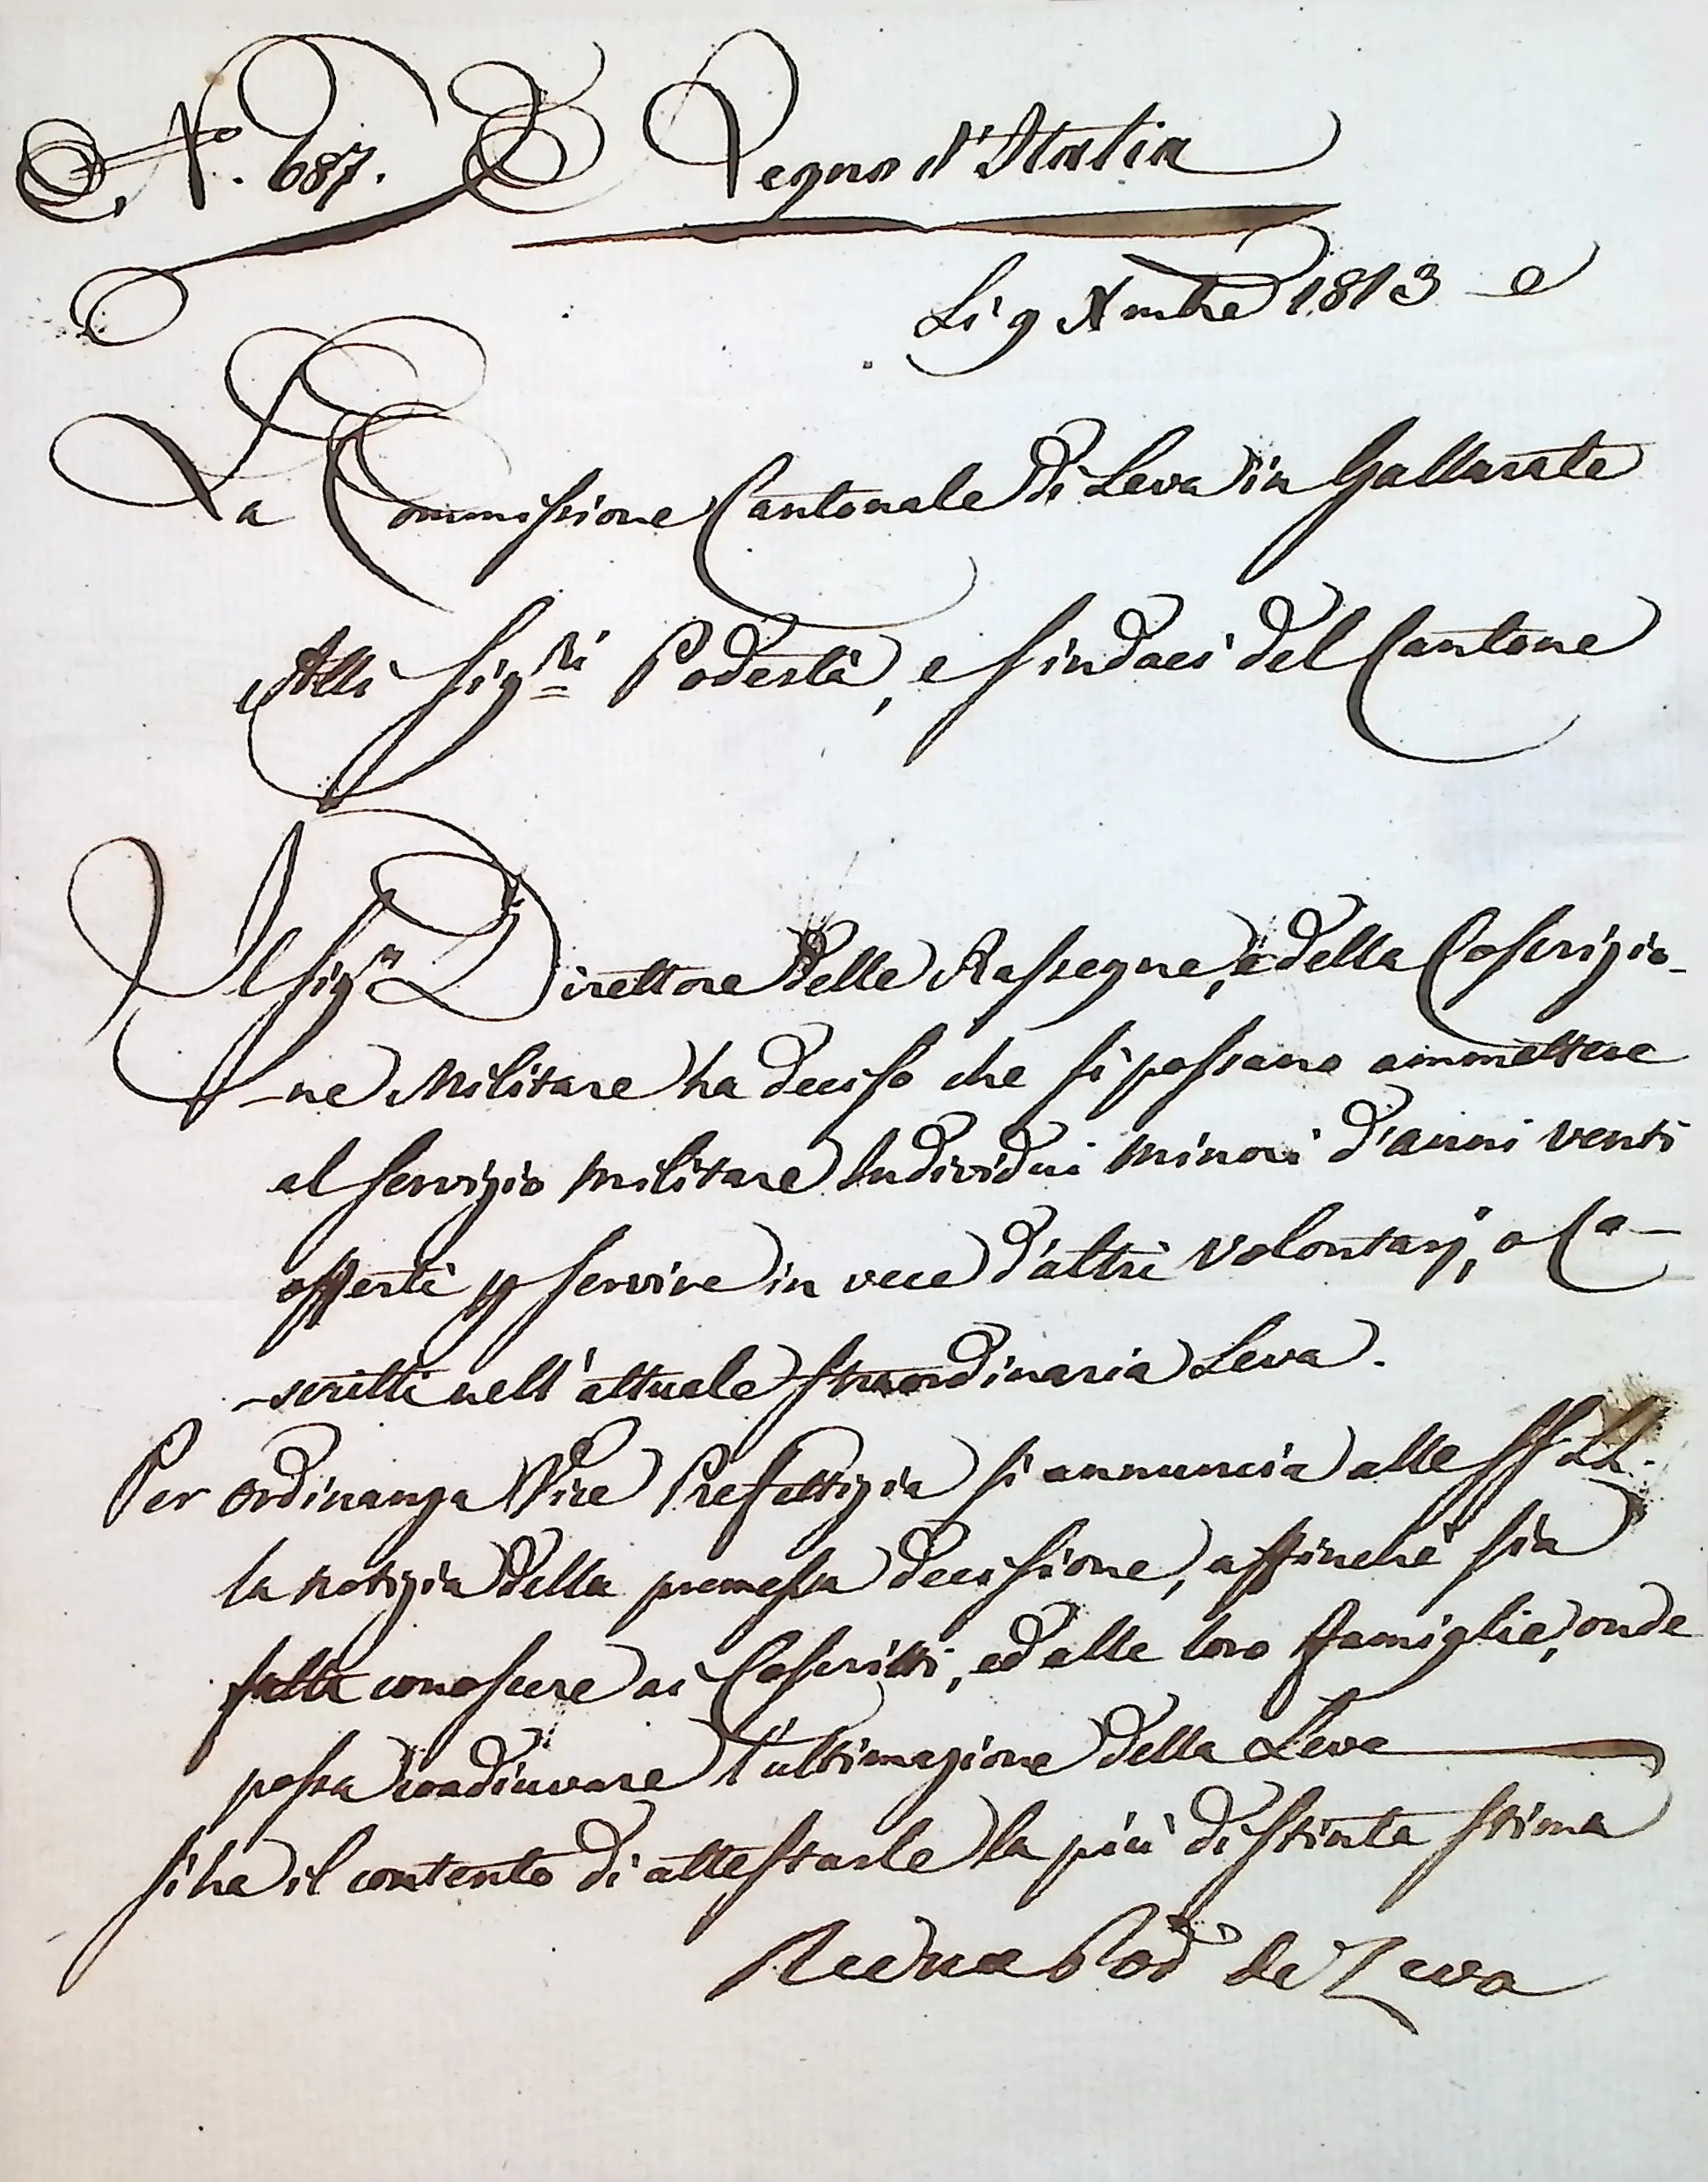 N.º 687. Regno d'Italia
Li 9 Xmbre 1813
La Commissione Cantonale di Leva in Gallarate
Alli Sig.ri Podestà, e Sindaci del Cantone
Il Sig.r Direttore delle Rassegne, e della Coscrizio-
-ne Militare ha deciso che si possano ammettere
al servizio militare Individui minori d'anni venti
offerti p servire in vece d'altri Volontarj, o Co-
-scritti nell'attuale straordinaria Leva.
Per ordinanza Vice Prefettizia si annuncia alle SS. LL.
la notizia della premessa decisione, affinchè sia
fatta conoscere ai Coscritti, ed alle loro famiglie, onde
possa coadiuvare l'ultimazione della Leva
Si ha il contento di attestarle la più distinta stima
Pod di Leva